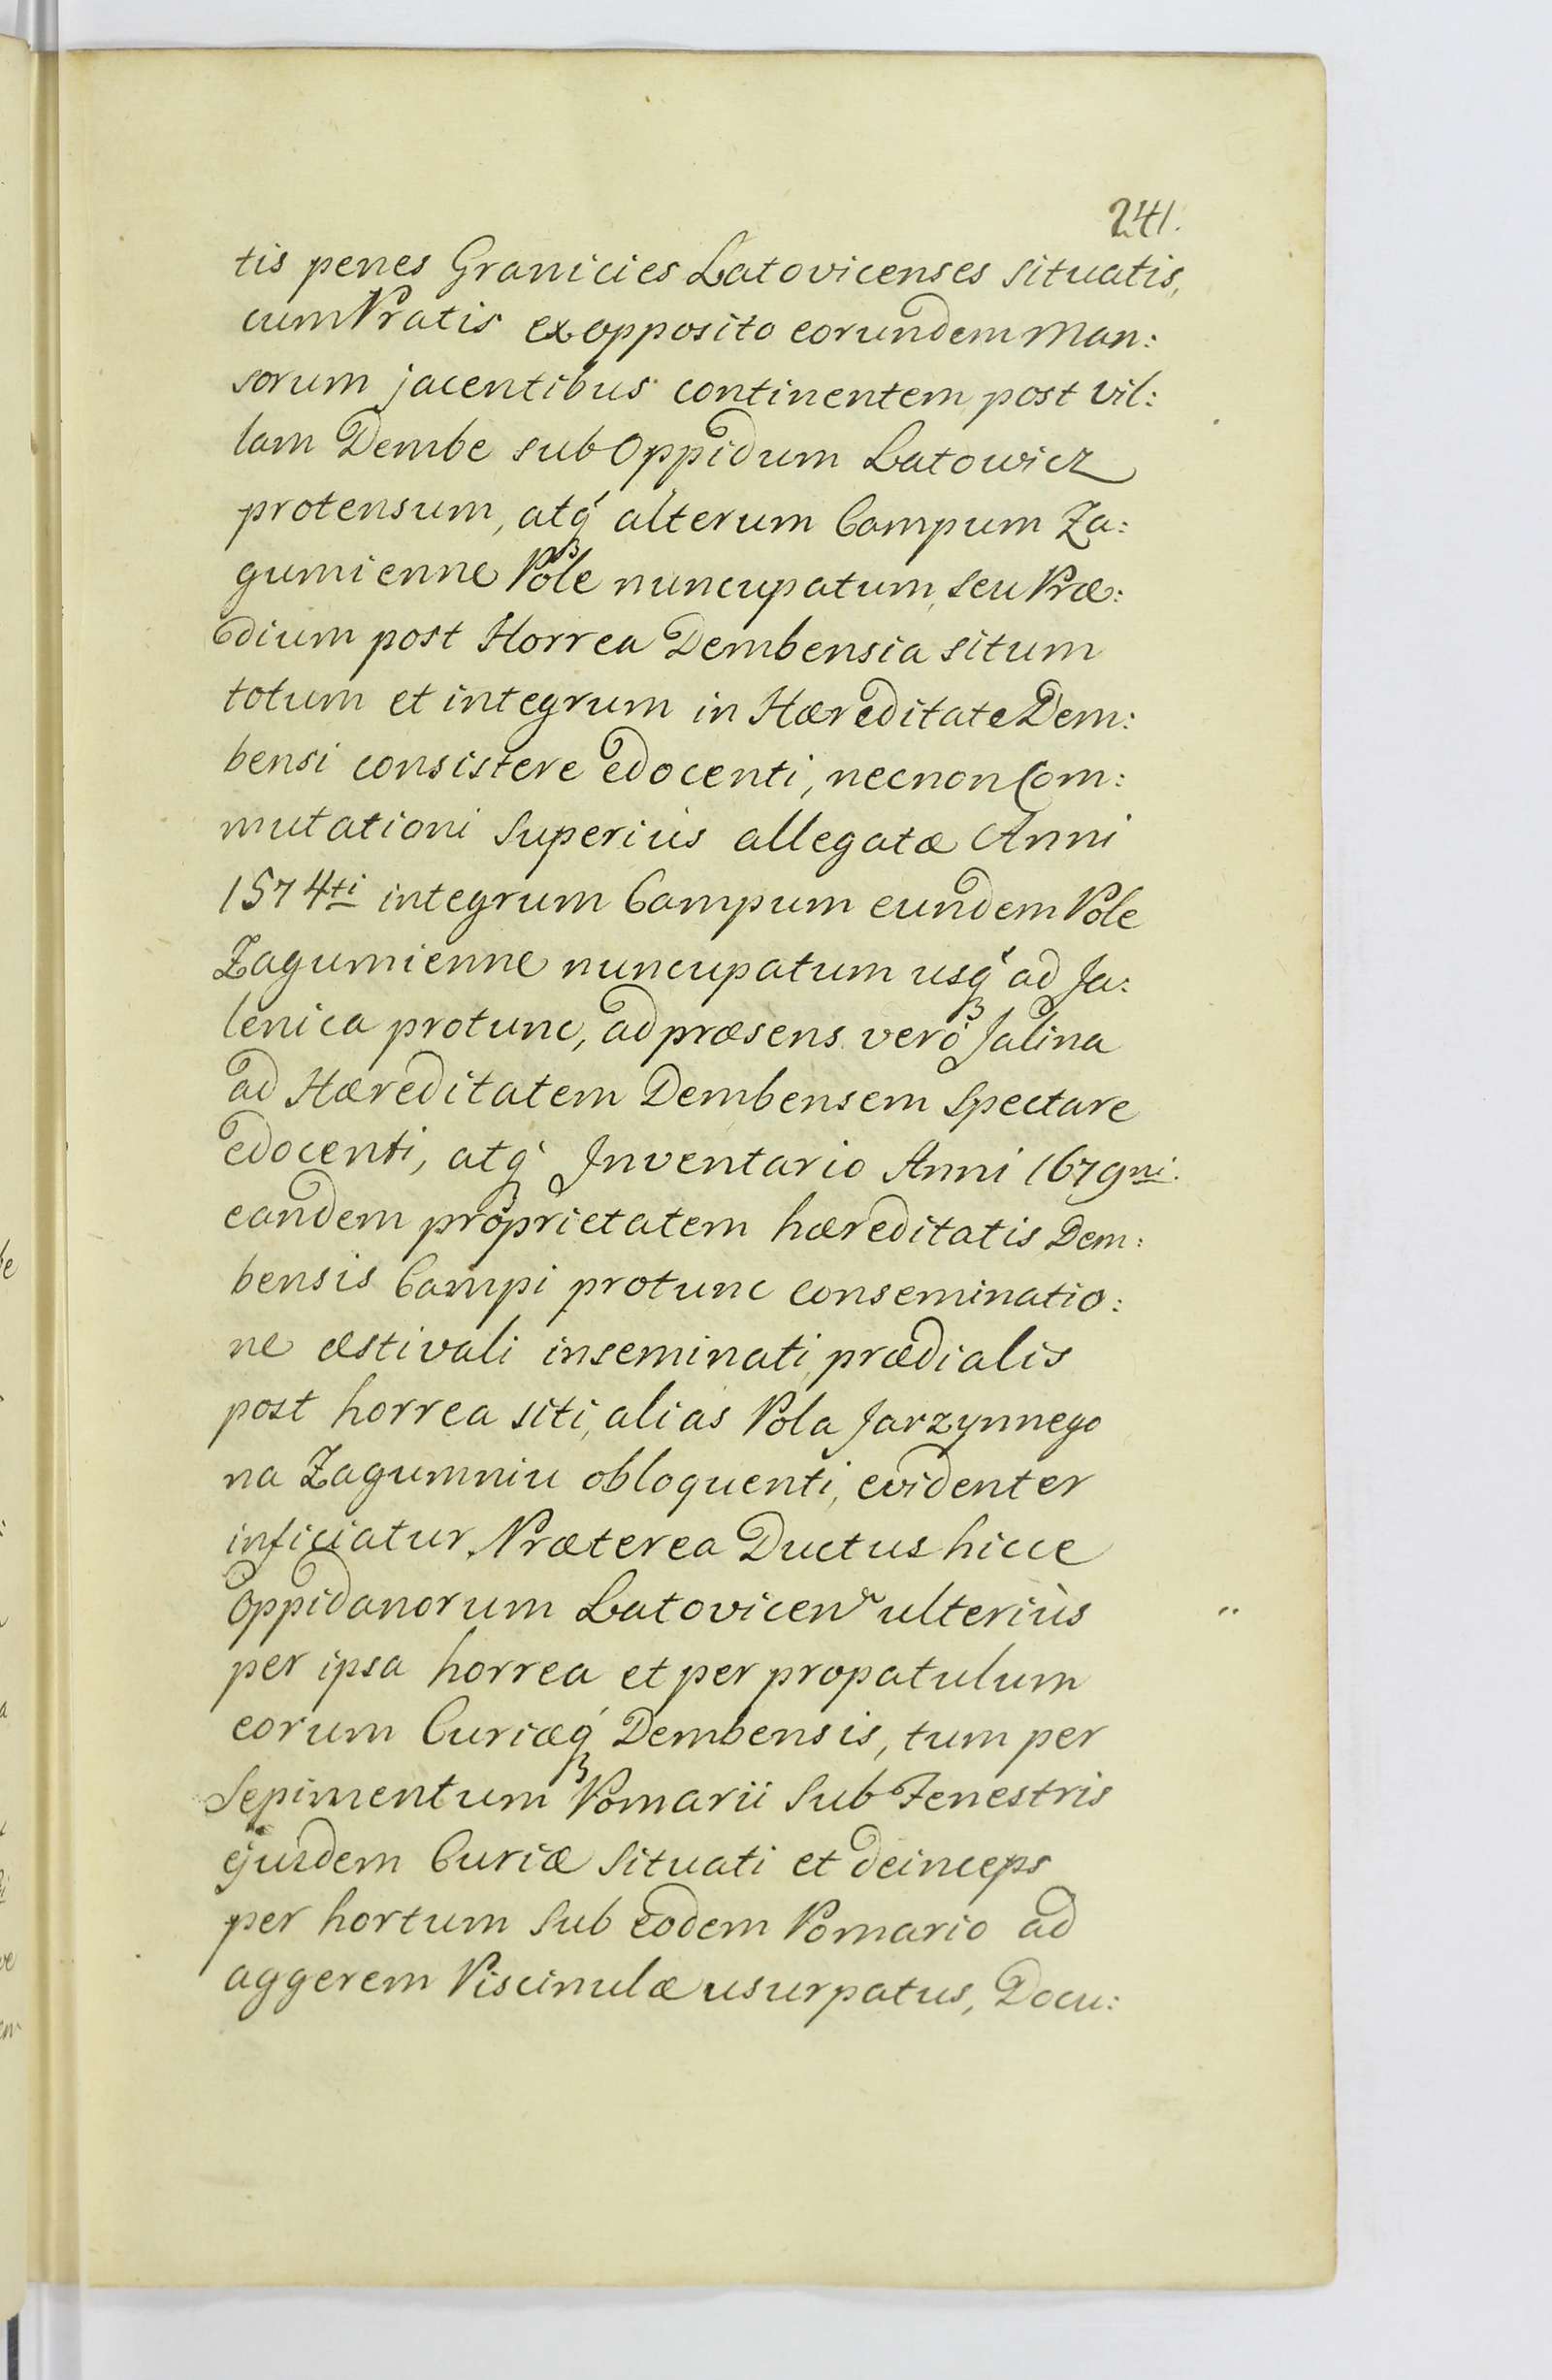 241.
tis penes Granicies Latovicenses situatis,
cum Pratis ex opposito eorundem Man:
sorum jacentibus continentem post Vil:
lam Dembe sub Oppidum Latowicz
protensum, atq́ꝫ alterum Campum Za:
gumienne Pole nuncupatum, seu Præ:
dium post Horrea Dembensia situm
totum et integrum in Hæreditate Dem:
bensi consistere edocenti, necnon Com:
mutationi superiùs allegatæ Anni
1574ti integrum Campum eundem Pole
Zagumienne nuncupatum usq́ꝫ ad Ja:
lenica protunc, ad præsens verò Jalina
ad Hæreditatem Dembensem spectare
edocenti, atq́ꝫ Inventario Anni 1679ni.
eandem proprietatem hæreditatis Dem:
bensis Campi protunc conseminatio:
ne æstivali inseminati, prædialis
post horrea siti, alias Pola Jarzynnego
na Zagumniu obloquenti, evidenter
inficiatur. Præterea Ductus hicce
Oppidanorum Latovicen ulteriùs
per ipsa horrea et per propatulum
eorum Curiæq́ꝫ Dembensis, tum per
Sepimentum Pomarii sub Fenestris
ejusdem Curiæ situati et deinceps
per hortum sub eodem Pomario ad
aggerem Piscinulæ usurpatus, Docu: